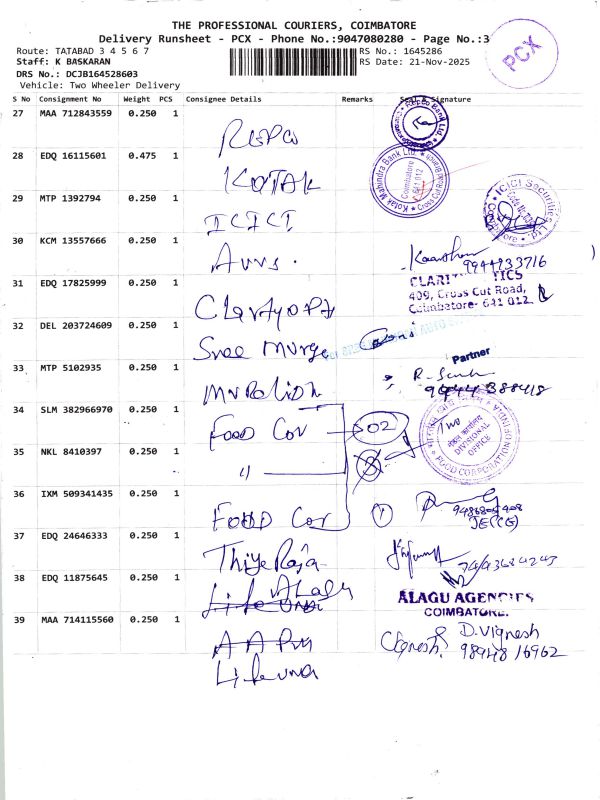 THE PROFESSIONAL COURIERS, COIMBATORE
Delivery Runsheet - PCX - Phone No.:9047080280 - Page No.:3
PCX
Route: TATABAD 3 4 5 6 7
RS No.: 1645286
Staff: K BASKARAN
RS Date: 21-Nov-2025
DRS No.: DCJB164528603
Vehicle: Two Wheeler Delivery
S No Consignment No Weight PCS Consignee Details Remarks Seal & Signature
27 MAA 712843559 0.250 1
Repco
Repco Bank Ltd.
28 EDQ 16115601 0.475 1
KOTAK
Kotak Mahindra Bank Ltd.
Coimbatore
641 012
Cross Cut Road Branch
29 MTP 1392794 0.250 1
ICICI
ICICI Securities Ltd.
30 KCM 13557666 0.250 1
9944933716
31 EDQ 17825999 0.250 1
CLARI TICS
409, Cross Cut Road,
Coimbatore- 641 012
32 DEL 203724609 0.250 1
Sree Muruga
33 MTP 5102935 0.250 1
Partner
9444388418
34 SLM 382966970 0.250 1
FOOD Cor
502
Two
DIVISIONAL OFFICE
FOOD CORPORATION OF INDIA
35 NKL 8410397 0.250 1
36 IXM 509341435 0.250 1
FOOD Cor
JE(CE)
37 EDQ 24646333 0.250 1
Thiyagaraja
38 EDQ 11875645 0.250 1
Alagu
ALAGU AGENCIES
COIMBATORE.
39 MAA 714115560 0.250 1
D. Vignesh
98948 16962